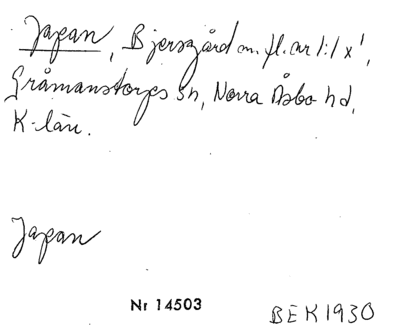 Japan, Bjersgård m. fl. ar 1:1 x¹,
Gråmanstorps sn, Norra Åsbo hd,
K-län.
Japan
Nr 14503
BEK1930